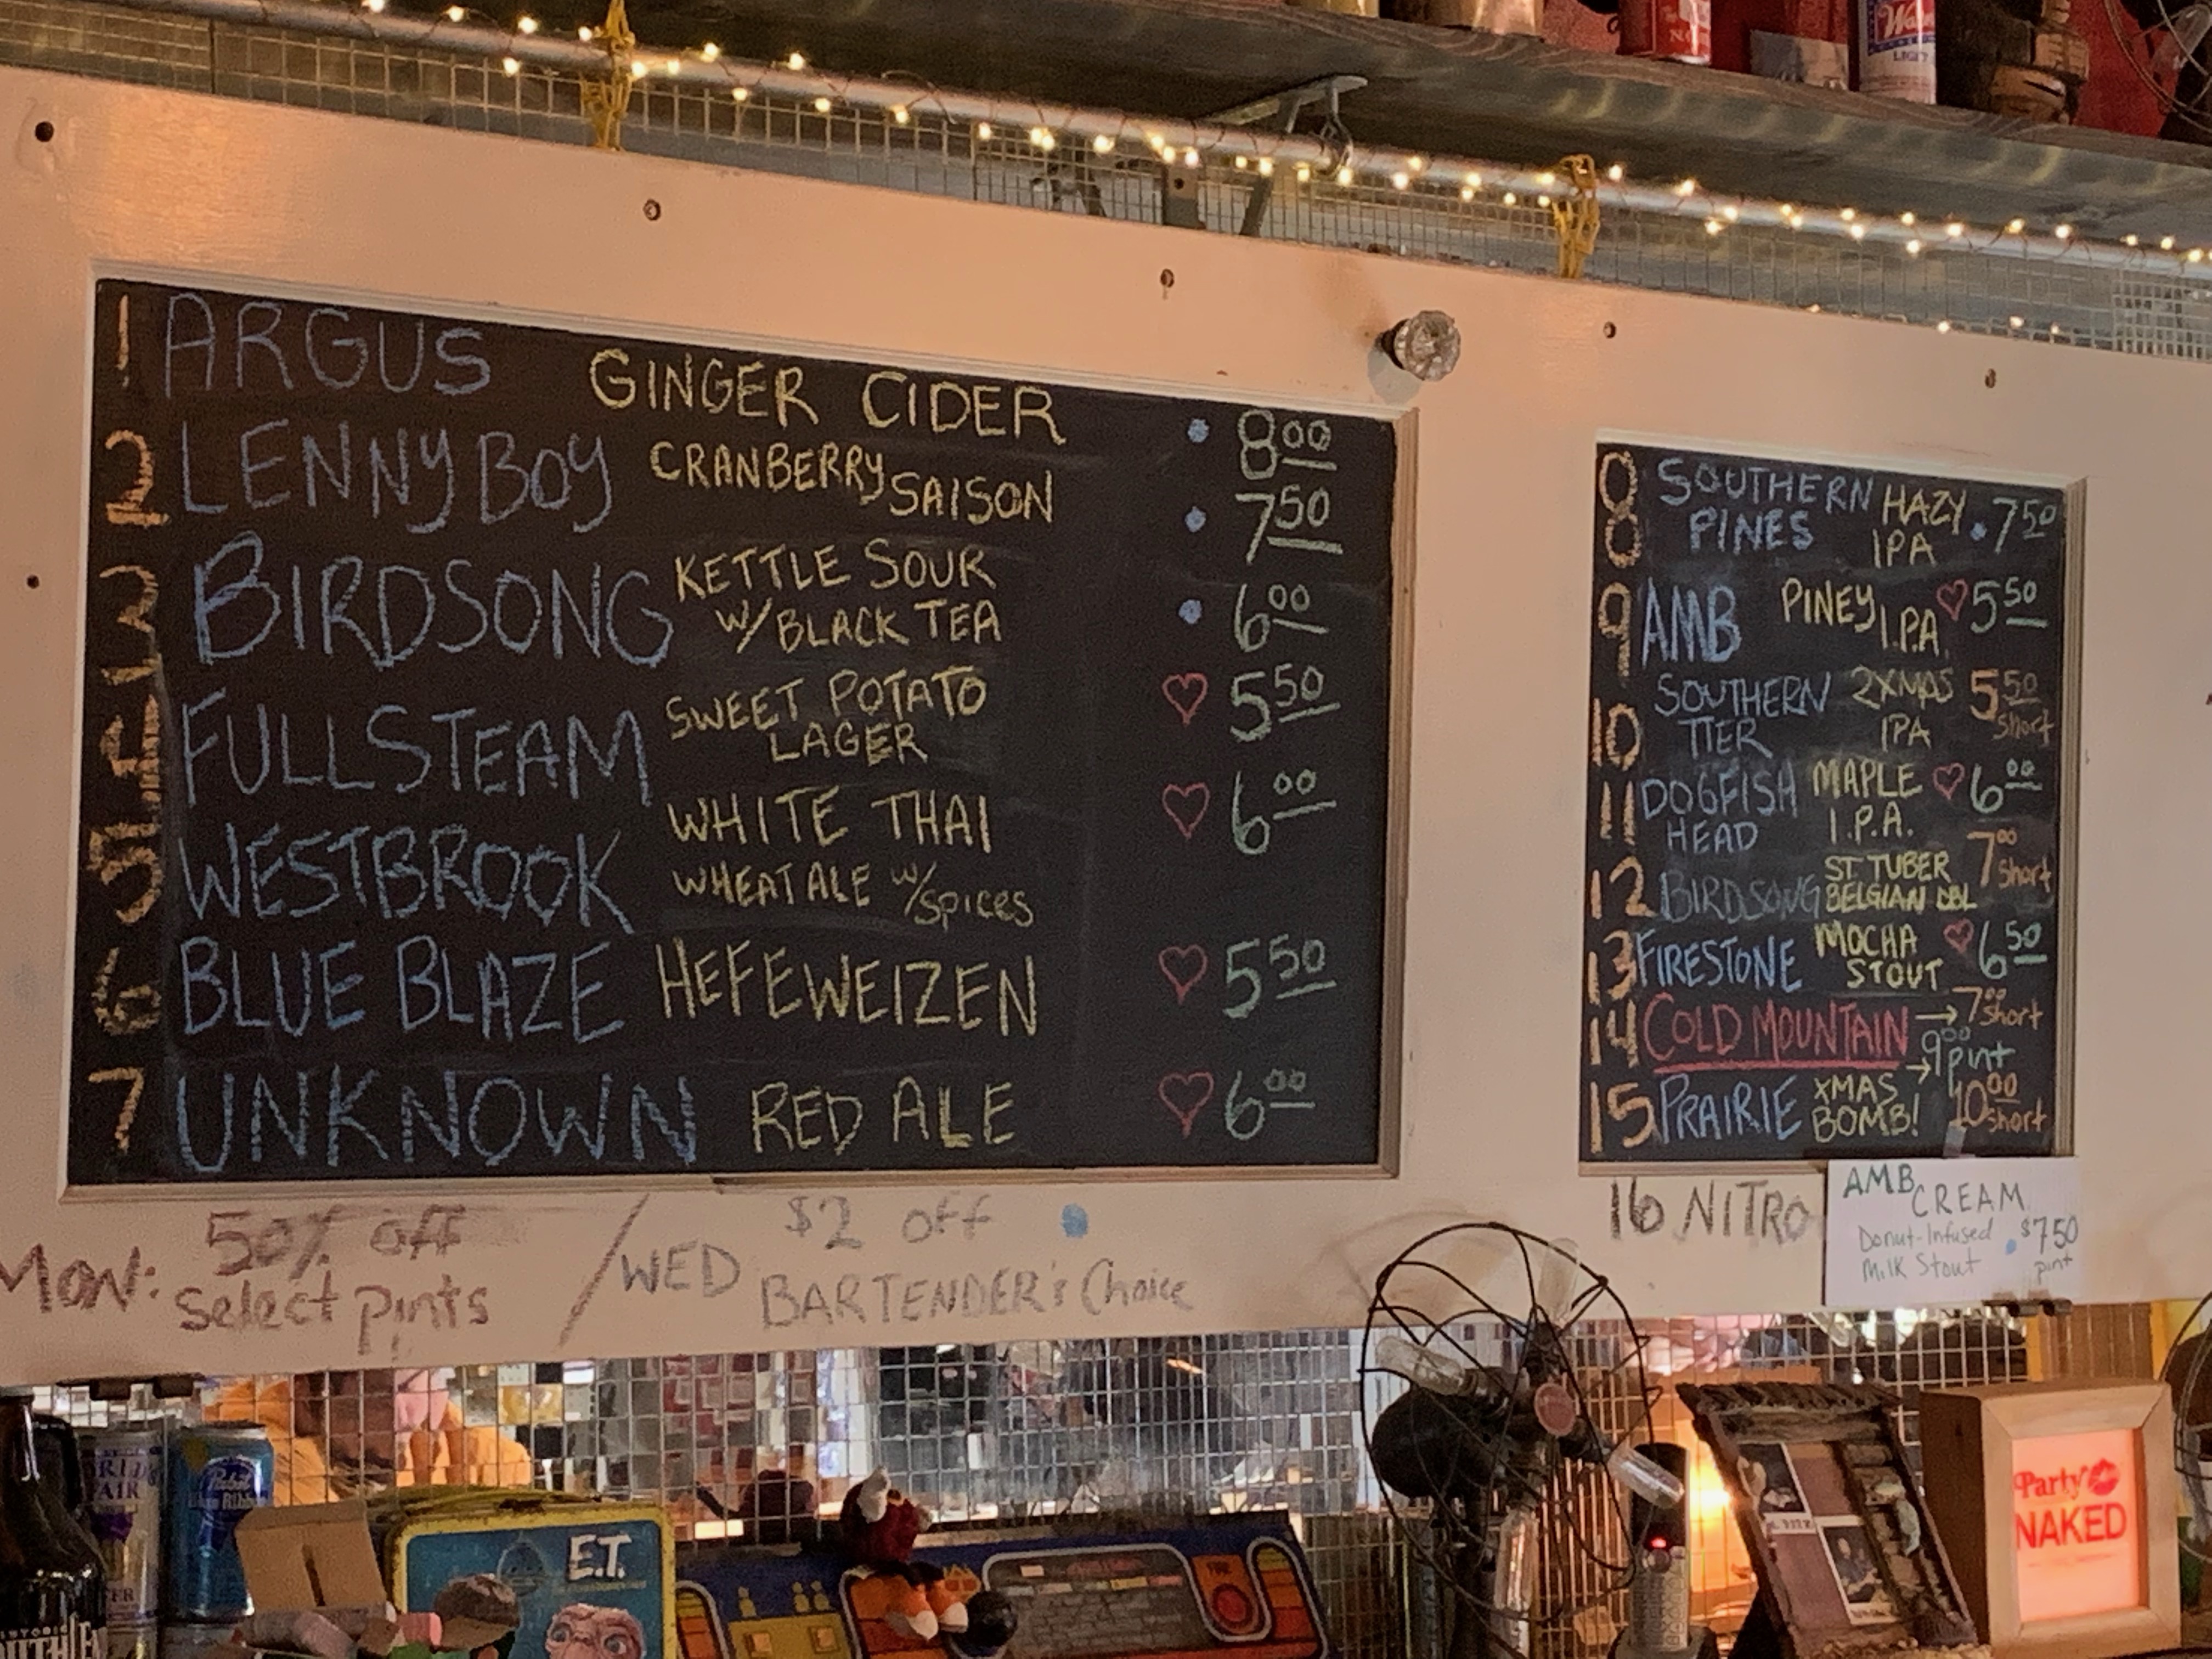 1 ARGUS GINGER CIDER 8 00
2 LENNY BOY CRANBERRY SAISON 7 50
3 BIRDSONG KETTLE SOUR 6 00
W/BLACK TEA
4 FULLSTEAM SWEET POTATO 5 50
LAGER
5 WESTBROOK WHITE THAI 6 00
WHEAT ALE W/SPICES
6 BLUE BLAZE HEFEWEIZEN 5 50
7 UNKNOWN RED ALE 6 00
MON: 50% off
Select pints
/ WED $2 off
BARTENDER's Choice
8 SOUTHERN HAZY 7 50
PINES IPA
9 AMB PINEY I.P.A. 5 50
10 SOUTHERN 2XMAS 5 50
TIER IPA short
11 DOGFISH MAPLE 6 00
HEAD I.P.A.
12 BIRDSONG ST. TUBER 7 00
BELGIAN DBL short
13 FIRESTONE MOCHA 6 50
STOUT
14 COLD MOUNTAIN → 7 00 short
→ 9 00 pint
15 PRAIRIE XMAS 10 00
BOMB! short
16 NITRO
AMB CREAM
Donut-Infused $7.50
Milk Stout pint
LIGHT
Pabst
Blue Ribbon
E.T.
Party
NAKED